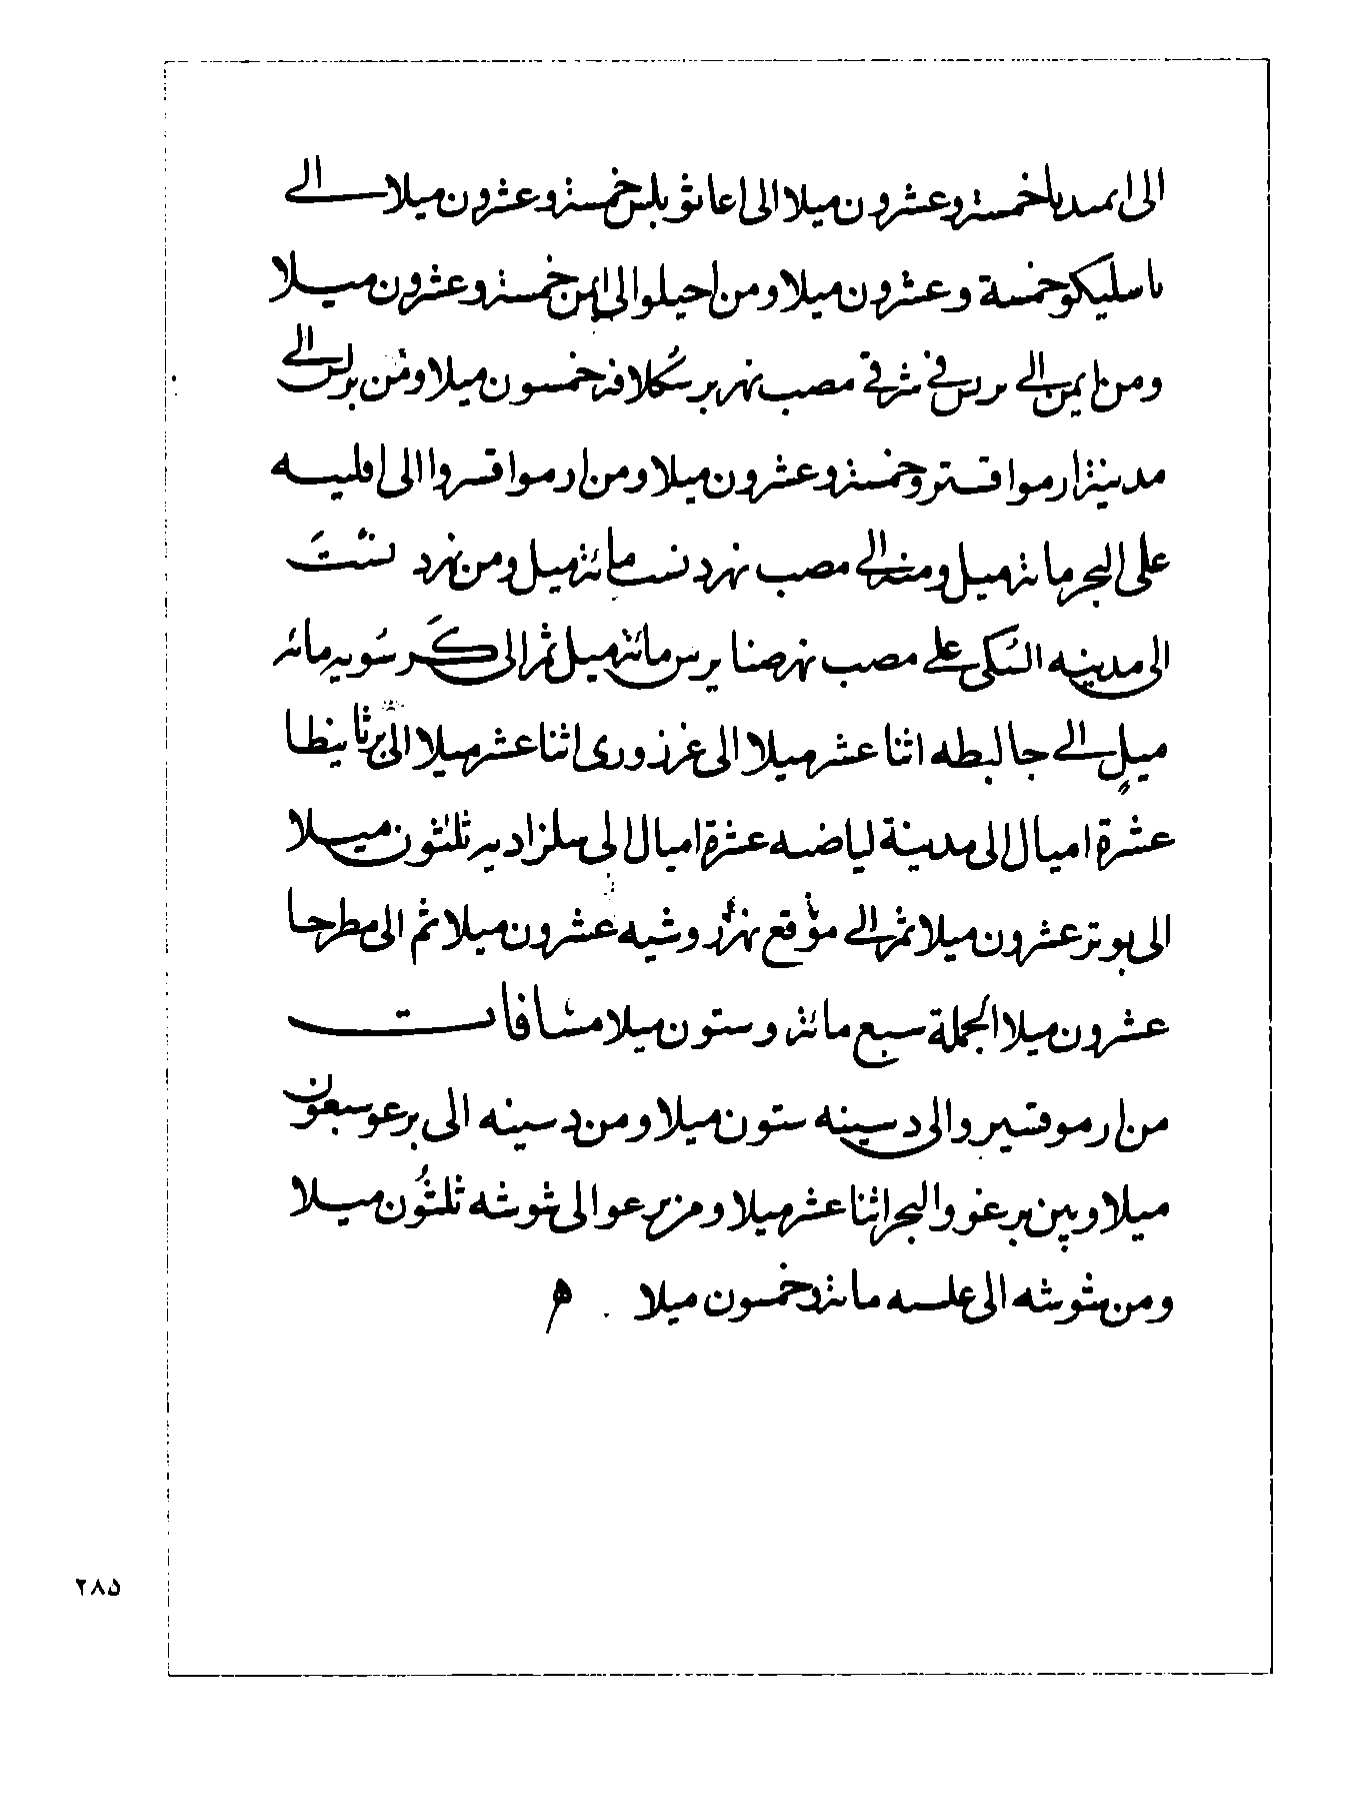 الى ايميدىا خمسة وعشرون ميلا الى اغاثوبلس خمسة وعشرون ميلا الى
باسليكو خمسة وعشرون ميلا ومن احيلو الى ايمن خمسة وعشرون ميلا
ومن ايمن الى برس فى شرقى مصب نهر بر سكلافه خمسون ميلا ومن برس الى
مدينة ارموا قسترو خمسة وعشرون ميلا ومن ارموا قسروا الى اقليسه
على البحر مائة ميل ومنه الى مصب نهر دنست مائة ميل ومن نهر دنست
الى مدينه السكى على مصب نهر صنابرس مائة ميل ثم الى كرسويه مائه
ميل الى جالبطه اثنا عشر ميلا الى غرزورى اثنا عشر ميلا الى برثابنطا
عشرة اميال الى مدينة لياضه عشرة اميال الى سلزاديه ثلثون ميلا
الى بوتر عشرون ميلا ثم الى موقع نهر روشيه عشرون ميلا ثم الى مطرحا
عشرون ميلا الجملة سبع مائة وستون ميلا مسافات
من ارموقسيروا الى دسينه ستون ميلا ومن دسينه الى برغو سبعون
ميلا وبين برغو والبحر اثنا عشر ميلا ومن برغوا الى شوشه ثلثون ميلا
ومن شوشه الى علسه مائة وخمسون ميلا
٢٨٥